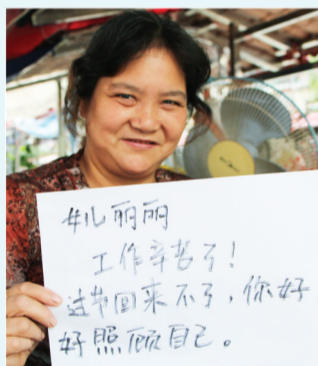 女儿丽丽
工作辛苦了!
过节回来不了,你好
好照顾自己。